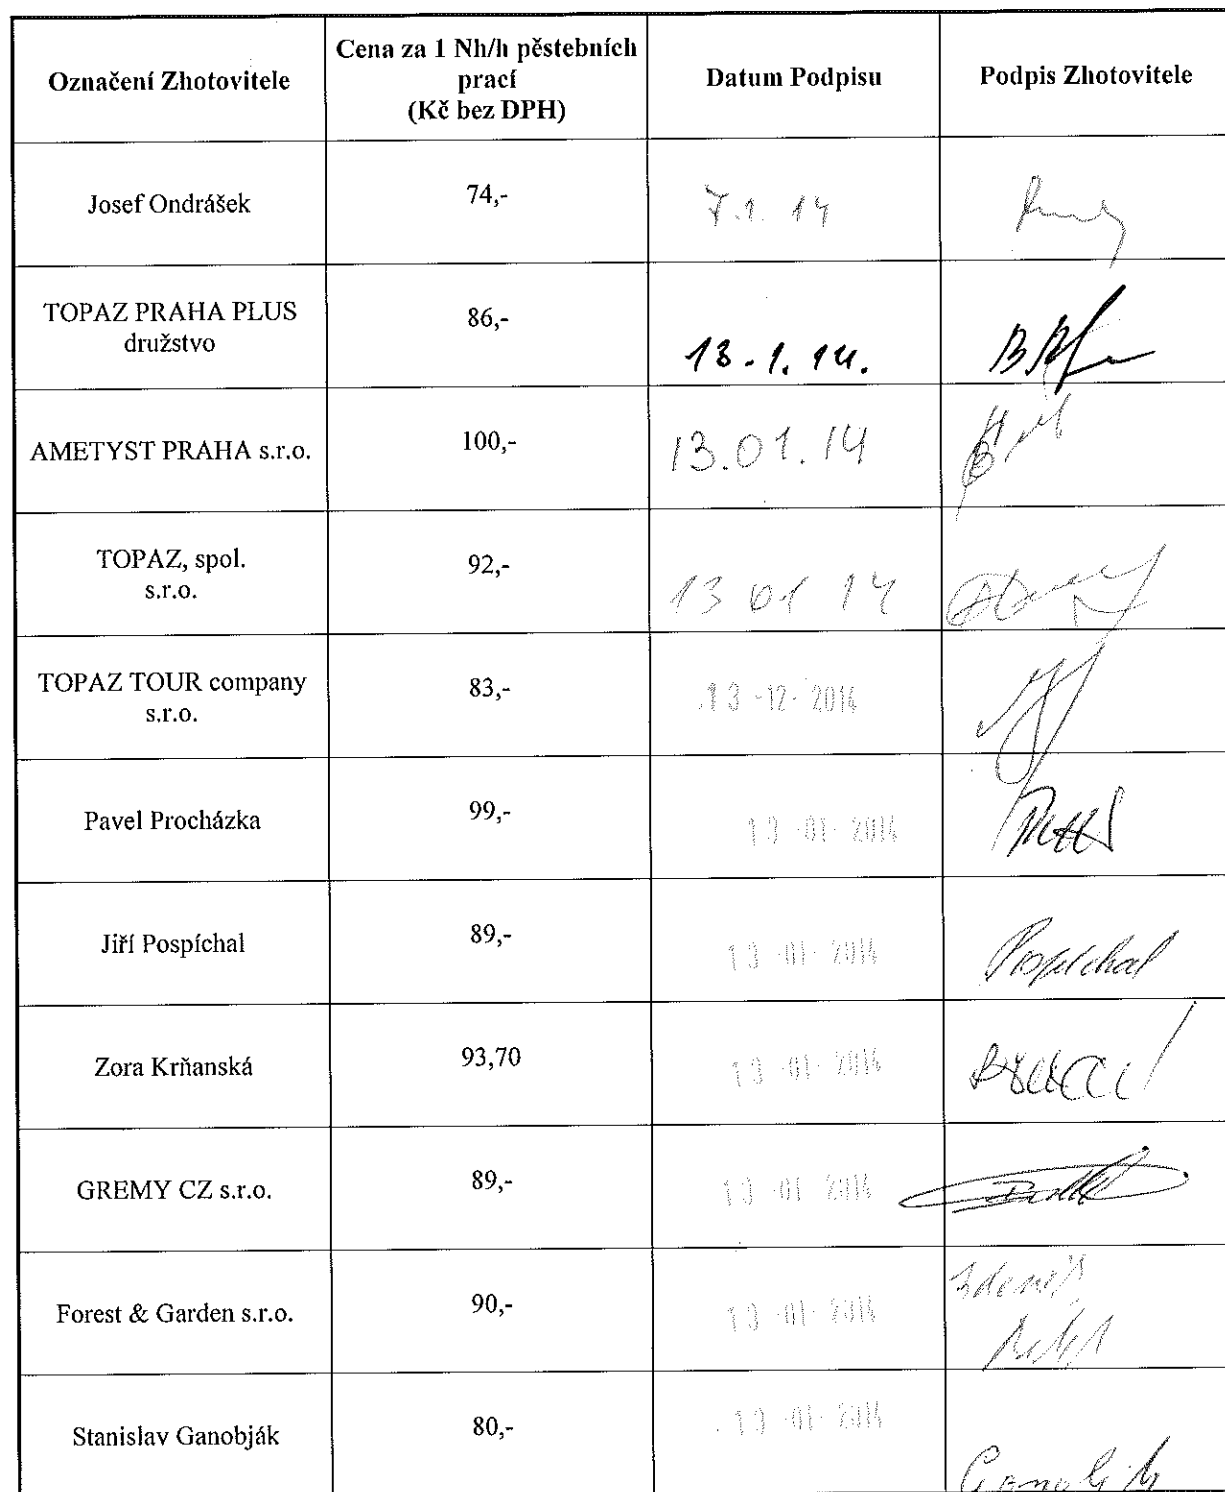 Označení Zhotovitele
Cena za 1 Nh/h pěstebních
prací
(Kč bez DPH)
Datum Podpisu
Podpis Zhotovitele
Josef Ondrášek
74,-
7.1. 14
TOPAZ PRAHA PLUS
družstvo
86,-
13.1.14.
AMETYST PRAHA s.r.o.
100,-
13.01.14
TOPAZ, spol.
s.r.o.
92,-
13 01 14
TOPAZ TOUR company
s.r.o.
83,-
13-12-2014
Pavel Procházka
99,-
13-01-2014
Jiří Pospíchal
89,-
13-01-2014
Pospíchal
Zora Krňanská
93,70
13-01-2014
GREMY CZ s.r.o.
89,-
13-01 2014
Forest & Garden s.r.o.
90,-
13-01-2014
Zdeněk
Stanislav Ganobják
80,-
13-01-2014